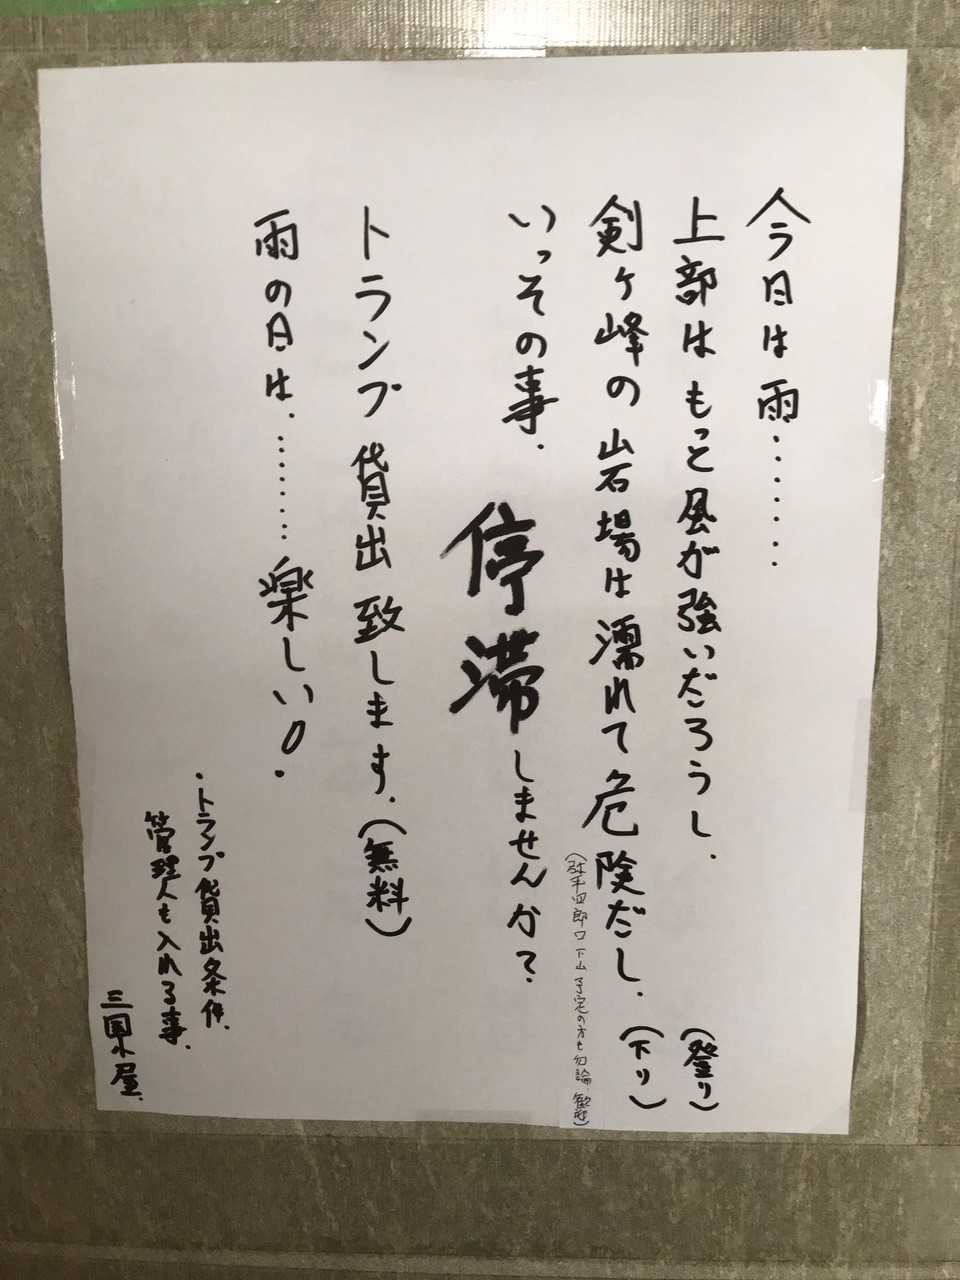 今日は雨........
上部はもっと風が強いだろうし、(登り)
剣ヶ峰の岩場は濡れて危険だし、(下り)
(弥平四郎口下山予定の方も勿論歓迎)
いっその事、停滞しませんか?
トランプ貸出致します。(無料)
雨の日は、........楽しい!
・トランプ貸出条件、
管理人も入れる事、
三国小屋、